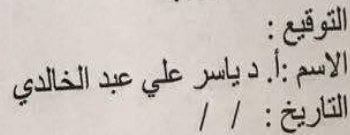 التوقيع :
الاسم :أ. د ياسر علي عبد الخالدي
التاريخ : / /